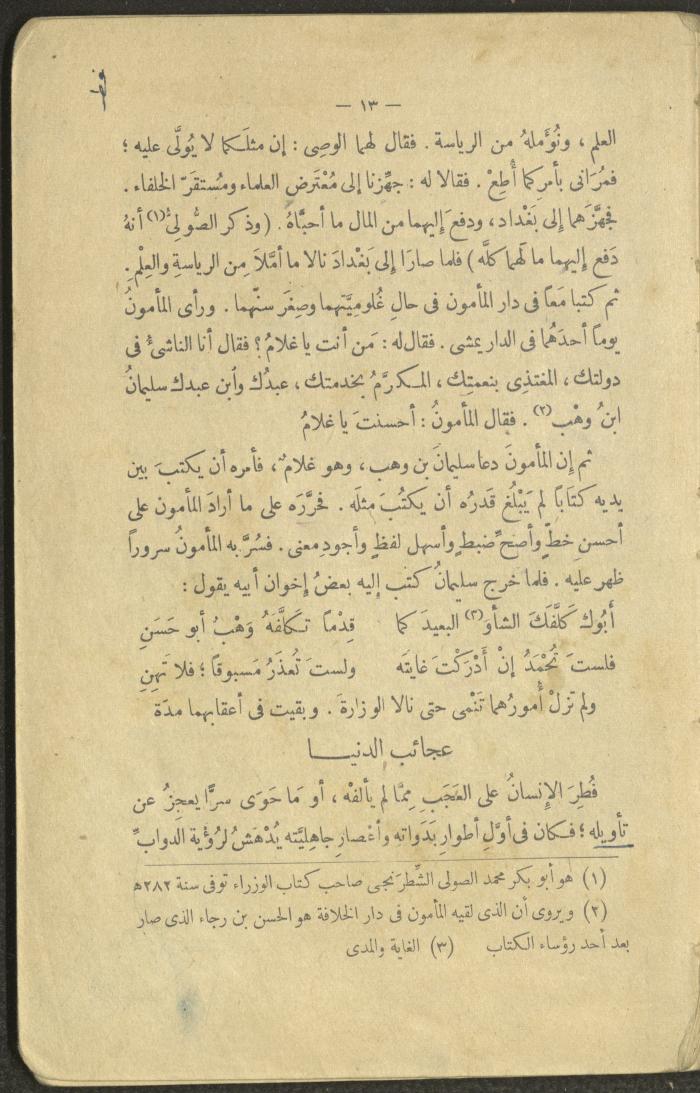 — ١٣ —
العلم ، ونُؤَملهُ من الرياسة . فقال لهما الوصى : إن مثلَكما لا يُولَّى عليه ؛
فمُرَانى بأمرِكما أُطِعْ . فقالا له : جهِّزنا إلى مُعْتَرض العلماء ومُستقَرّ الخلفاء .
فجهَّزَهما إلى بَغْداد ، ودفع إليهما من المال ما أحبَّاهُ . (وذكر الصُّولىُّ (١) أنهُ
دَفع إليهما ما لهُما كلَّه) فلما صارَا إلى بَغْدادَ نالا ما أمَّلاَ مِن الرياسةِ والعِلْمِ.
ثم كتبا مَعاً فى دار المأمون فى حالِ غُلوميَّتهما وصِغَر سنّهما . ورأى المأمونُ
يوماً أحدَهُما فى الدار يمشى . فقال له : مَن أنت يا غلامُ ؟ فقال أنا الناشئُ فى
دولتك ، المغتذِى بنعمتِك ، المـكرَّمُ بخدمتك ، عبدُك وٱبن عبدك سليمانُ
ابنُ وهْب (٢) . فقال المأمونُ : أحسنتَ يا غلامُ
ثم إن المأمونَ دعا سليمانَ بن وهب ، وهو غلامٌ ، فأمره أن يكتبَ بين
يديه كتَابًا لم يَبْلُغ قدرُه أن يكتُبَ مثلَه . فحرَّرَه على ما أرادَ المأمون على
أحسن خطٍّ وأصحِّ ضبطٍ وأسهل لفظٍ وأجودِ معنى . فسُرَّ به المأمونُ سروراً
ظهر عليه . فلما خرج سليمانُ كتب إليه بعضُ إخوان أبيه يقول :
أَبُوك كَلَّفَكَ الشأوَ (٣) البعيدَ كما قِدْمًا تـكلَّفَهُ وَهْبُ أبو حَسَنِ
فلستَ تُحْمَدُ إنْ أَدْرَكْتَ غايتَه ولستَ تُعذَرُ مَسبوقًا ؛ فلا تَهِنِ
ولم تزلْ أُمورُهما تَنْمى حتى نالا الوزارةَ . وبقيت فى أعقابهما مدّة
عجائب الدنيـــا
فُطِرَ الإنسانُ على العَجَبِ مِمّا لم يألفْه ، أو مَا حَوَى سرًّا يعجِزُ عن
تأويلِه ؛ فـكان فى أوَّلِ أطوارِ بَدَوَاته وأعْصارِ جاهليَّته يُدْهَشُ لرُؤْية الدوابِّ
(١) هو أبو بكر محمد الصولى الشِّطْرَنجى صاحب كتاب الوزراء توفى سنة ٢٨٢ هـ
(٢) ويروى أن الذى لقيه المأمون فى دار الخلافة هو الحسن بن رجاء الذى صار
بعد أحد رؤساء الـكتاب (٣) الغاية والمدى